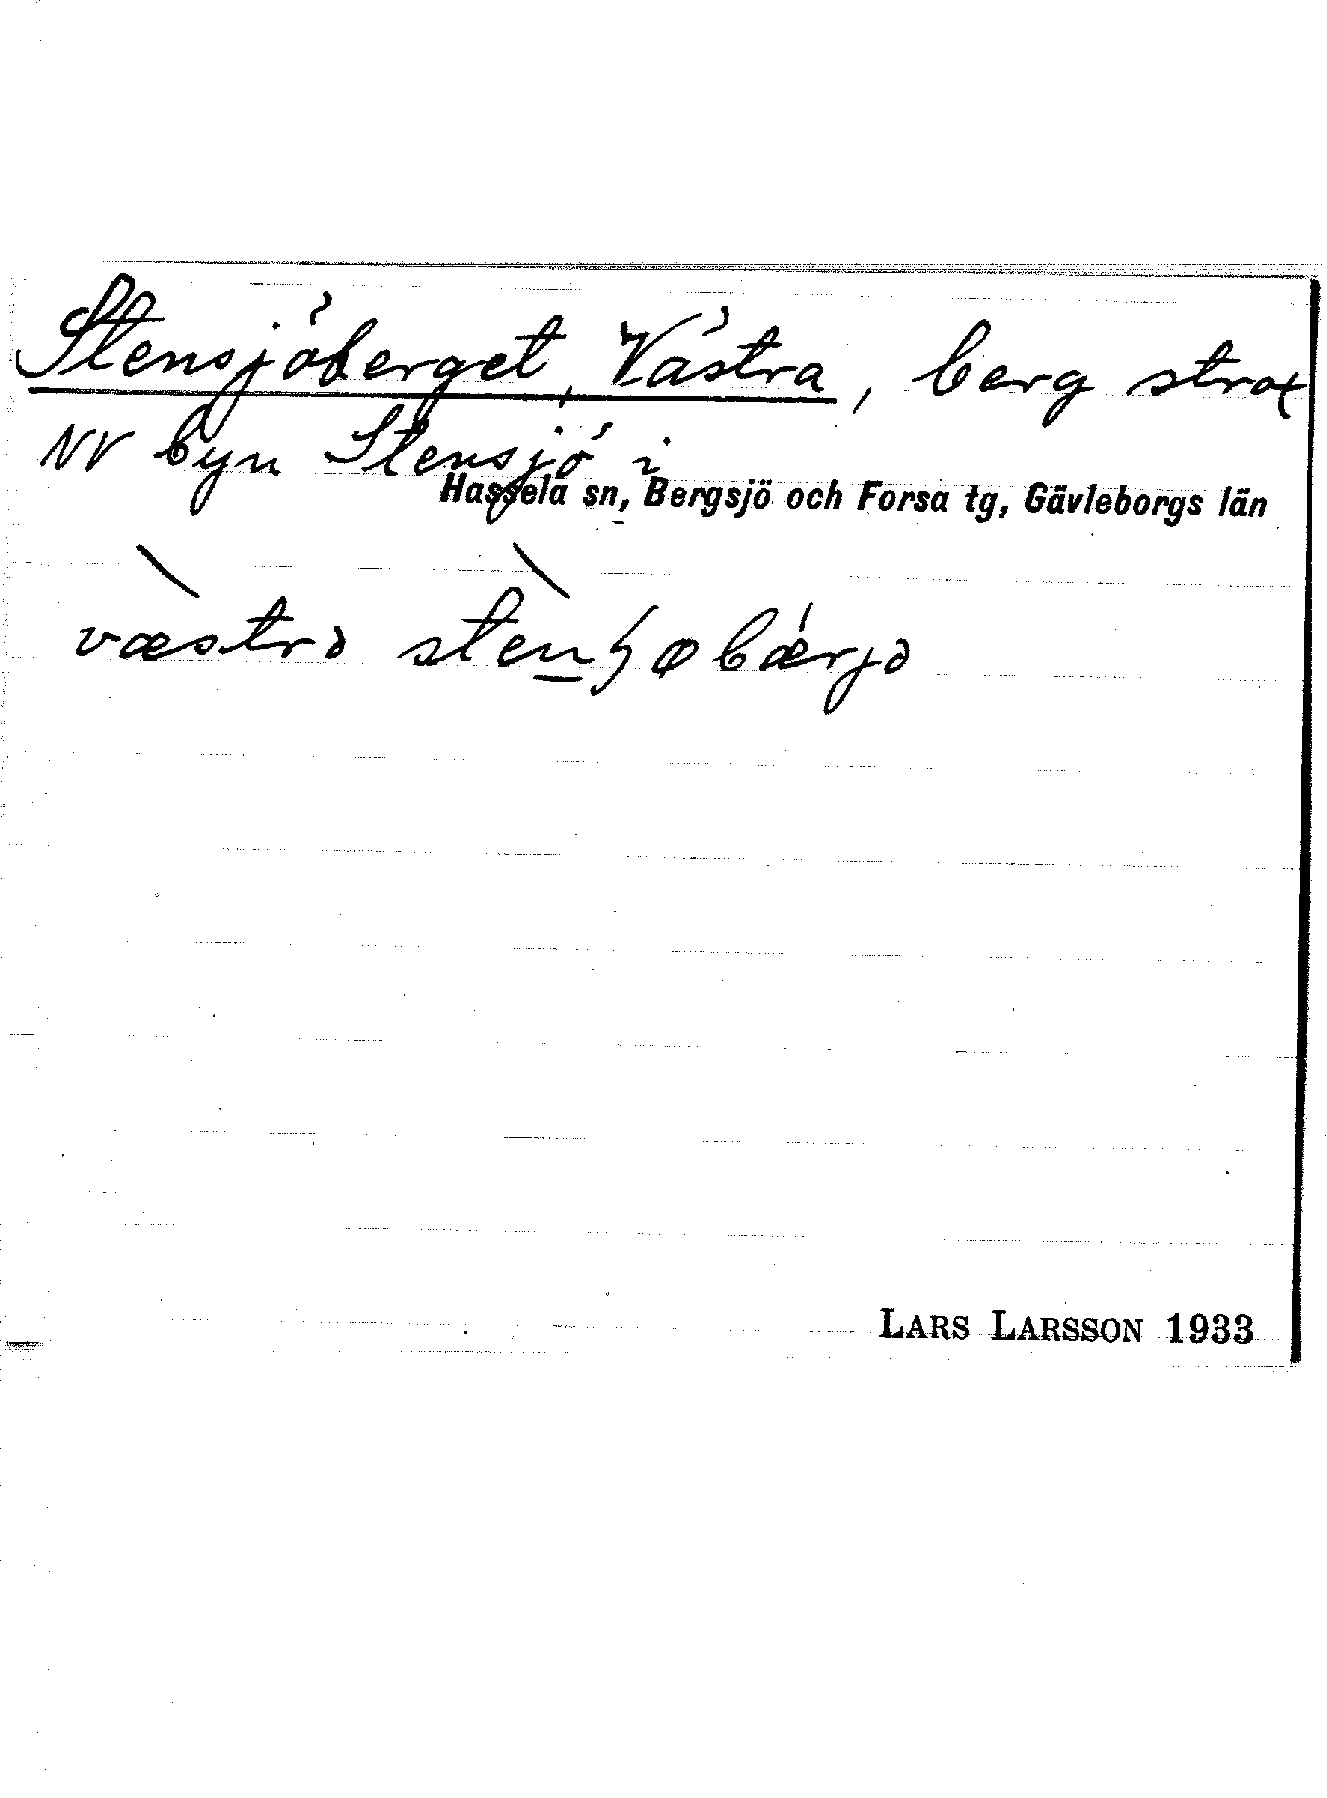 Stensjöberget, Västra, berg strax
NV byn Stensjö i
Hassela sn, Bergsjö och Forsa tg, Gävleborgs län
væ̀strə stèn̲ɧøbǽrjə
LARS LARSSON 1933